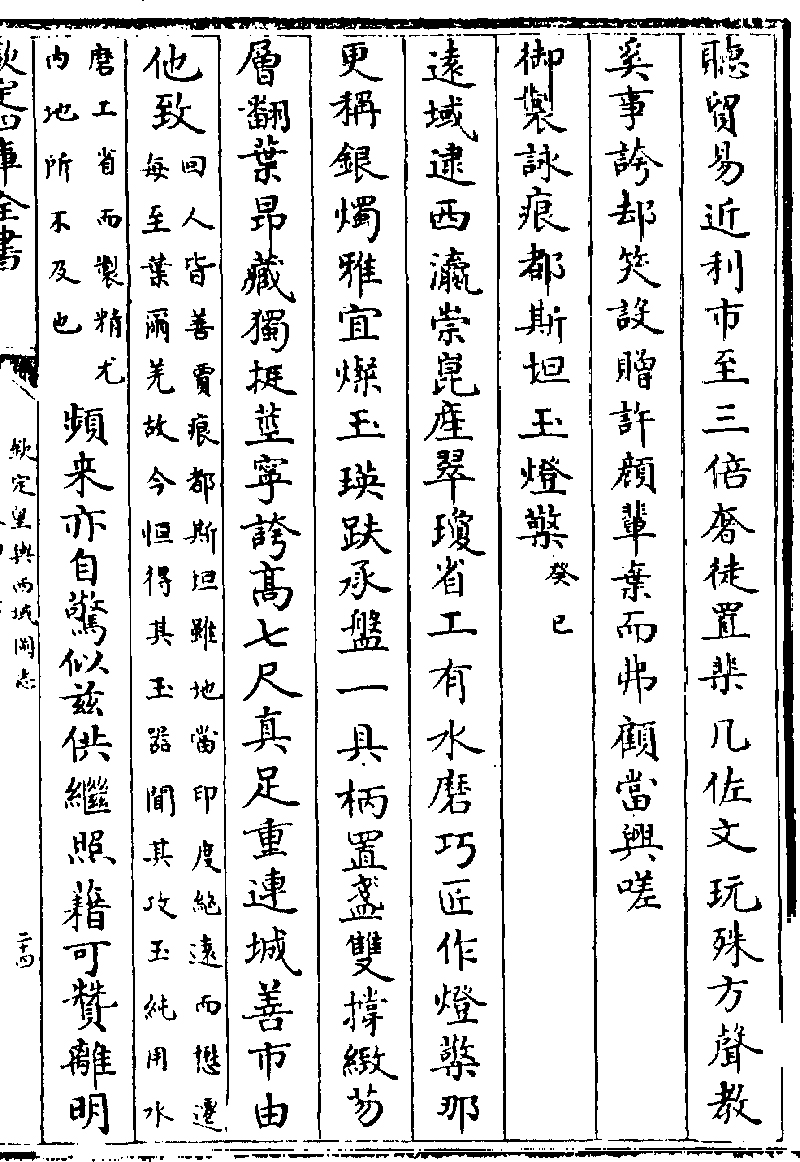 聽貿易近利市至三倍奢徒置棐几佐文玩殊方聲教
奚事誇却笑設贈許顔輩棄而弗顧當興嗟
御製詠痕都斯坦玉燈檠癸巳
遠域逮西瀛崇崑産翠瓊省工有水磨巧匠作燈檠那
更稱銀燭雅宜燦玉瑛趺承盤一具柄置盞雙撐緻芴
層翻葉昂藏獨挺莖寧誇高七尺真足重連城善市由
他致回人皆善賈痕都斯坦雖地當印度絕遠而懋遷
每至葉爾羌故今恒得其玉器聞其攻玉純用水
磨工省而製精尤
内地所不及也頻来亦自驚似兹供繼照藉可贊離明
欽定四庫全書
欽定皇輿西域圖志
二十四